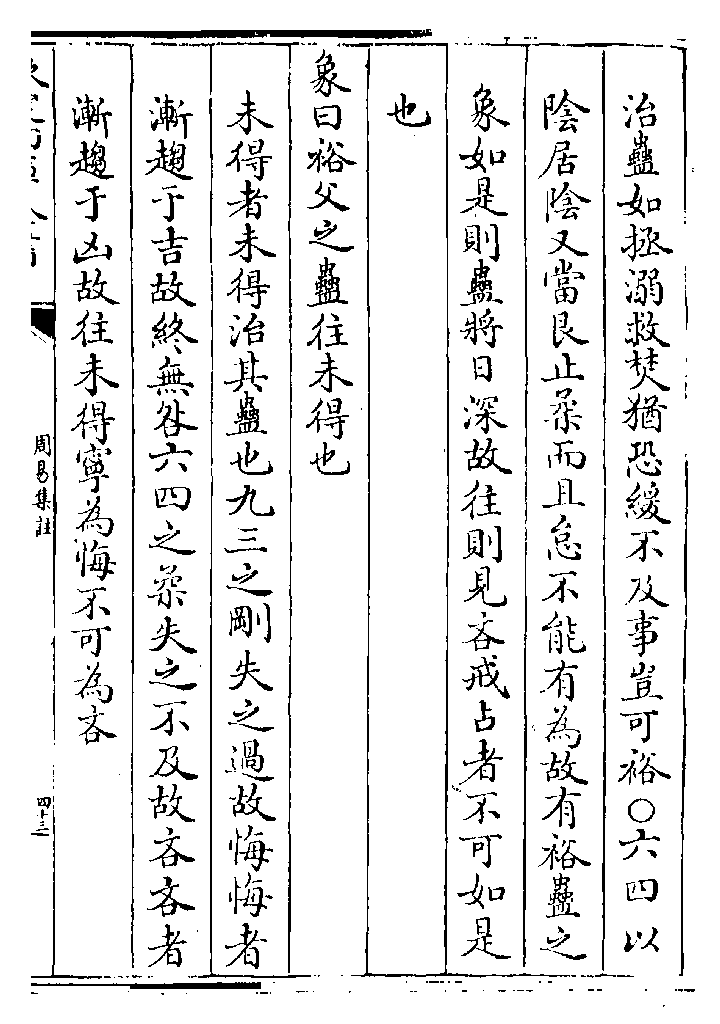 治蠱如拯溺救焚猶恐緩不及事豈可裕○六四以
陰居陰又當艮止柔而且怠不能有為故有裕蠱之
象如是則蠱將日深故往則見吝戒占者不可如是
也
象曰裕父之蠱往未得也
未得者未得治其蠱也九三之剛失之過故悔悔者
漸趨于吉故終無咎六四之柔失之不及故吝吝者
漸趨于凶故往未得寧為悔不可為吝
周易集註
四十三